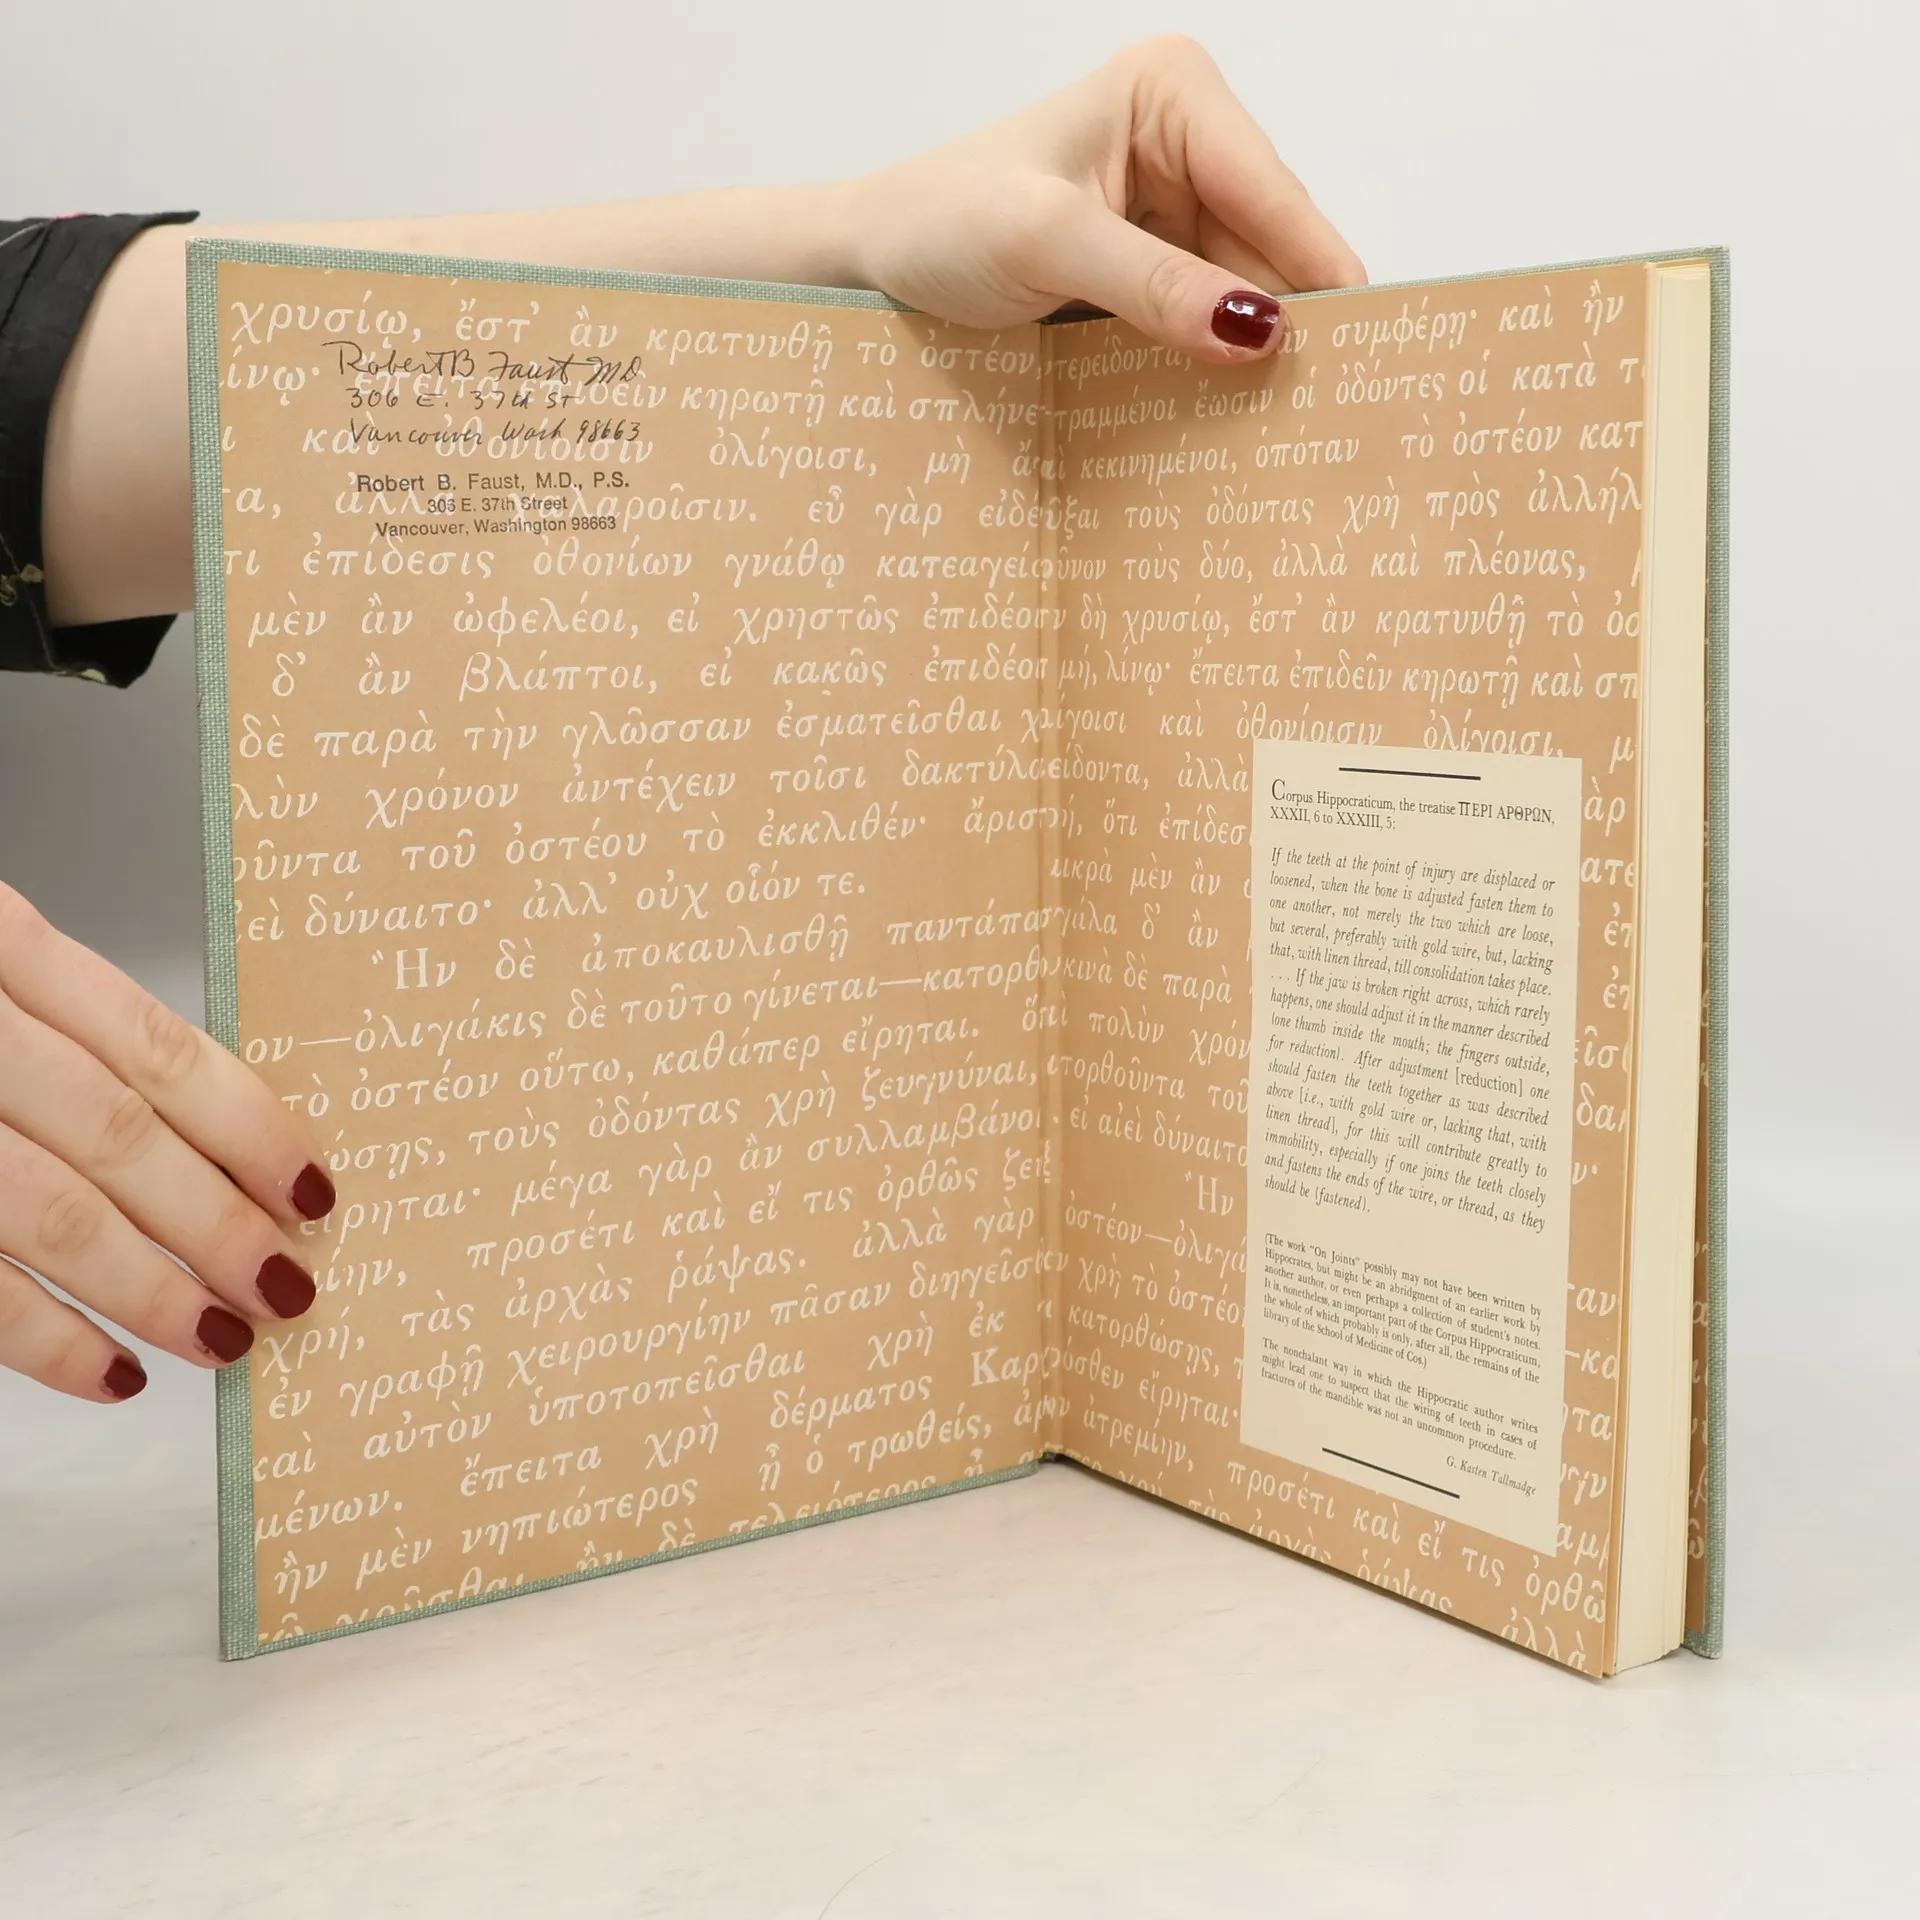 χρυσίῳ, ἔστ' ἂν κρατυνθῇ τὸ ὀστέον,
Robert B Faust MD
ίνῳ· ἔπειτα ἐπιδεῖν κηρωτῇ καὶ σπλήνε-
306 E. 37th ST
Vancouver Wash 98663
ι καὶ ὀθονίοισιν ὀλίγοισι, μὴ ἄ
Robert B. Faust, M.D., P.S.
306 E. 37th Street
Vancouver, Washington 98663
τα, ἀλλὰ χαλαροῖσιν. εὖ γὰρ εἰδέ
τι ἐπίδεσις ὀθονίων γνάθῳ κατεαγείσ
μὲν ἂν ὠφελέοι, εἰ χρηστῶς ἐπιδέοι
δ' ἂν βλάπτοι, εἰ κακῶς ἐπιδέοι
δὲ παρὰ τὴν γλῶσσαν ἐσματεῖσθαι χ
λὺν χρόνον ἀντέχειν τοῖσι δακτύλο
οῦντα τοῦ ὀστέου τὸ ἐκκλιθέν· ἄριστ
εἰ δύναιτο· ἀλλ' οὐχ οἷόν τε.
Ἢν δὲ ἀποκαυλισθῇ παντάπασ
ον—ὀλιγάκις δὲ τοῦτο γίνεται—κατορθ
τὸ ὀστέον οὕτω, καθάπερ εἴρηται. ὅτ
ώσῃς, τοὺς ὀδόντας χρὴ ζευγνύναι,
εἴρηται· μέγα γὰρ ἂν συλλαμβάνοι
ίην, προσέτι καὶ εἴ τις ὀρθῶς ζεύ
χρή, τὰς ἀρχὰς ῥάψας. ἀλλὰ γὰρ
ἐν γραφῇ χειρουργίην πᾶσαν διηγεῖσ
καὶ αὐτὸν ὑποτοπεῖσθαι χρὴ ἐκ
μένων. ἔπειτα χρὴ δέρματος Καρ
ἢν μὲν νηπιώτερος ᾖ ὁ τρωθείς, ἀρ
χρῦσθαι, ἢν δὲ τελειότερος ᾖ
τερείδοντα, ἂν συμφέρῃ· καὶ ἢν
τραμμένοι ἔωσιν οἱ ὀδόντες οἱ κατὰ τ
κεκινημένοι, ὁπόταν τὸ ὀστέον κατ
ῦξαι τοὺς ὀδόντας χρὴ πρὸς ἀλλήλ
οῦνον τοὺς δύο, ἀλλὰ καὶ πλέονας,
δὴ χρυσίῳ, ἔστ' ἂν κρατυνθῇ τὸ ὀσ
μή, λίνῳ· ἔπειτα ἐπιδεῖν κηρωτῇ καὶ σπ
ίγοισι καὶ ὀθονίοισιν ὀλίγοισι, μ
είδοντα, ἀλλὰ
ὰρ
ή, ὅτι ἐπίδεσι
ατε
μικρὰ μὲν ἂν
γάλα δ' ἂν
ἐπ
κινὰ δὲ παρὰ
ὶ πολὺν χρόν
εῖσ
τορθοῦντα τοῦ
δακ
εἰ αἰεὶ δύναιτο
ν·
Ἢν
ὀστέον—ὀλιγά
ταν
χρὴ τὸ ὀστέο
κατορθώσῃς, τ
ύσθεν εἴρηται·
ητα
ἀτρεμίην, προσέτι καὶ εἴ τις ὀρθῶ
χρή, τὰς ἀρχὰς ῥάψας. ἀλλὰ
Corpus Hippocraticum, the treatise ΠΕΡΙ ΑΡΘΡΩΝ,
XXXII, 6 to XXXIII, 5:
If the teeth at the point of injury are displaced or
loosened, when the bone is adjusted fasten them to
one another, not merely the two which are loose,
but several, preferably with gold wire, but, lacking
that, with linen thread, till consolidation takes place.
. . . If the jaw is broken right across, which rarely
happens, one should adjust it in the manner described
(one thumb inside the mouth; the fingers outside,
for reduction). After adjustment [reduction] one
should fasten the teeth together as was described
above [i.e., with gold wire or, lacking that, with
linen thread], for this will contribute greatly to
immobility, especially if one joins the teeth closely
and fastens the ends of the wire, or thread, as they
should be (fastened).
(The work “On Joints” possibly may not have been written by
Hippocrates, but might be an abridgment of an earlier work by
another author, or even perhaps a collection of student's notes.
It is, nonetheless, an important part of the Corpus Hippocraticum,
the whole of which probably is only, after all, the remains of the
library of the School of Medicine of Cos.)
The nonchalant way in which the Hippocratic author writes
might lead one to suspect that the wiring of teeth in cases of
fractures of the mandible was not an uncommon procedure.
G. Kasten Tallmadge